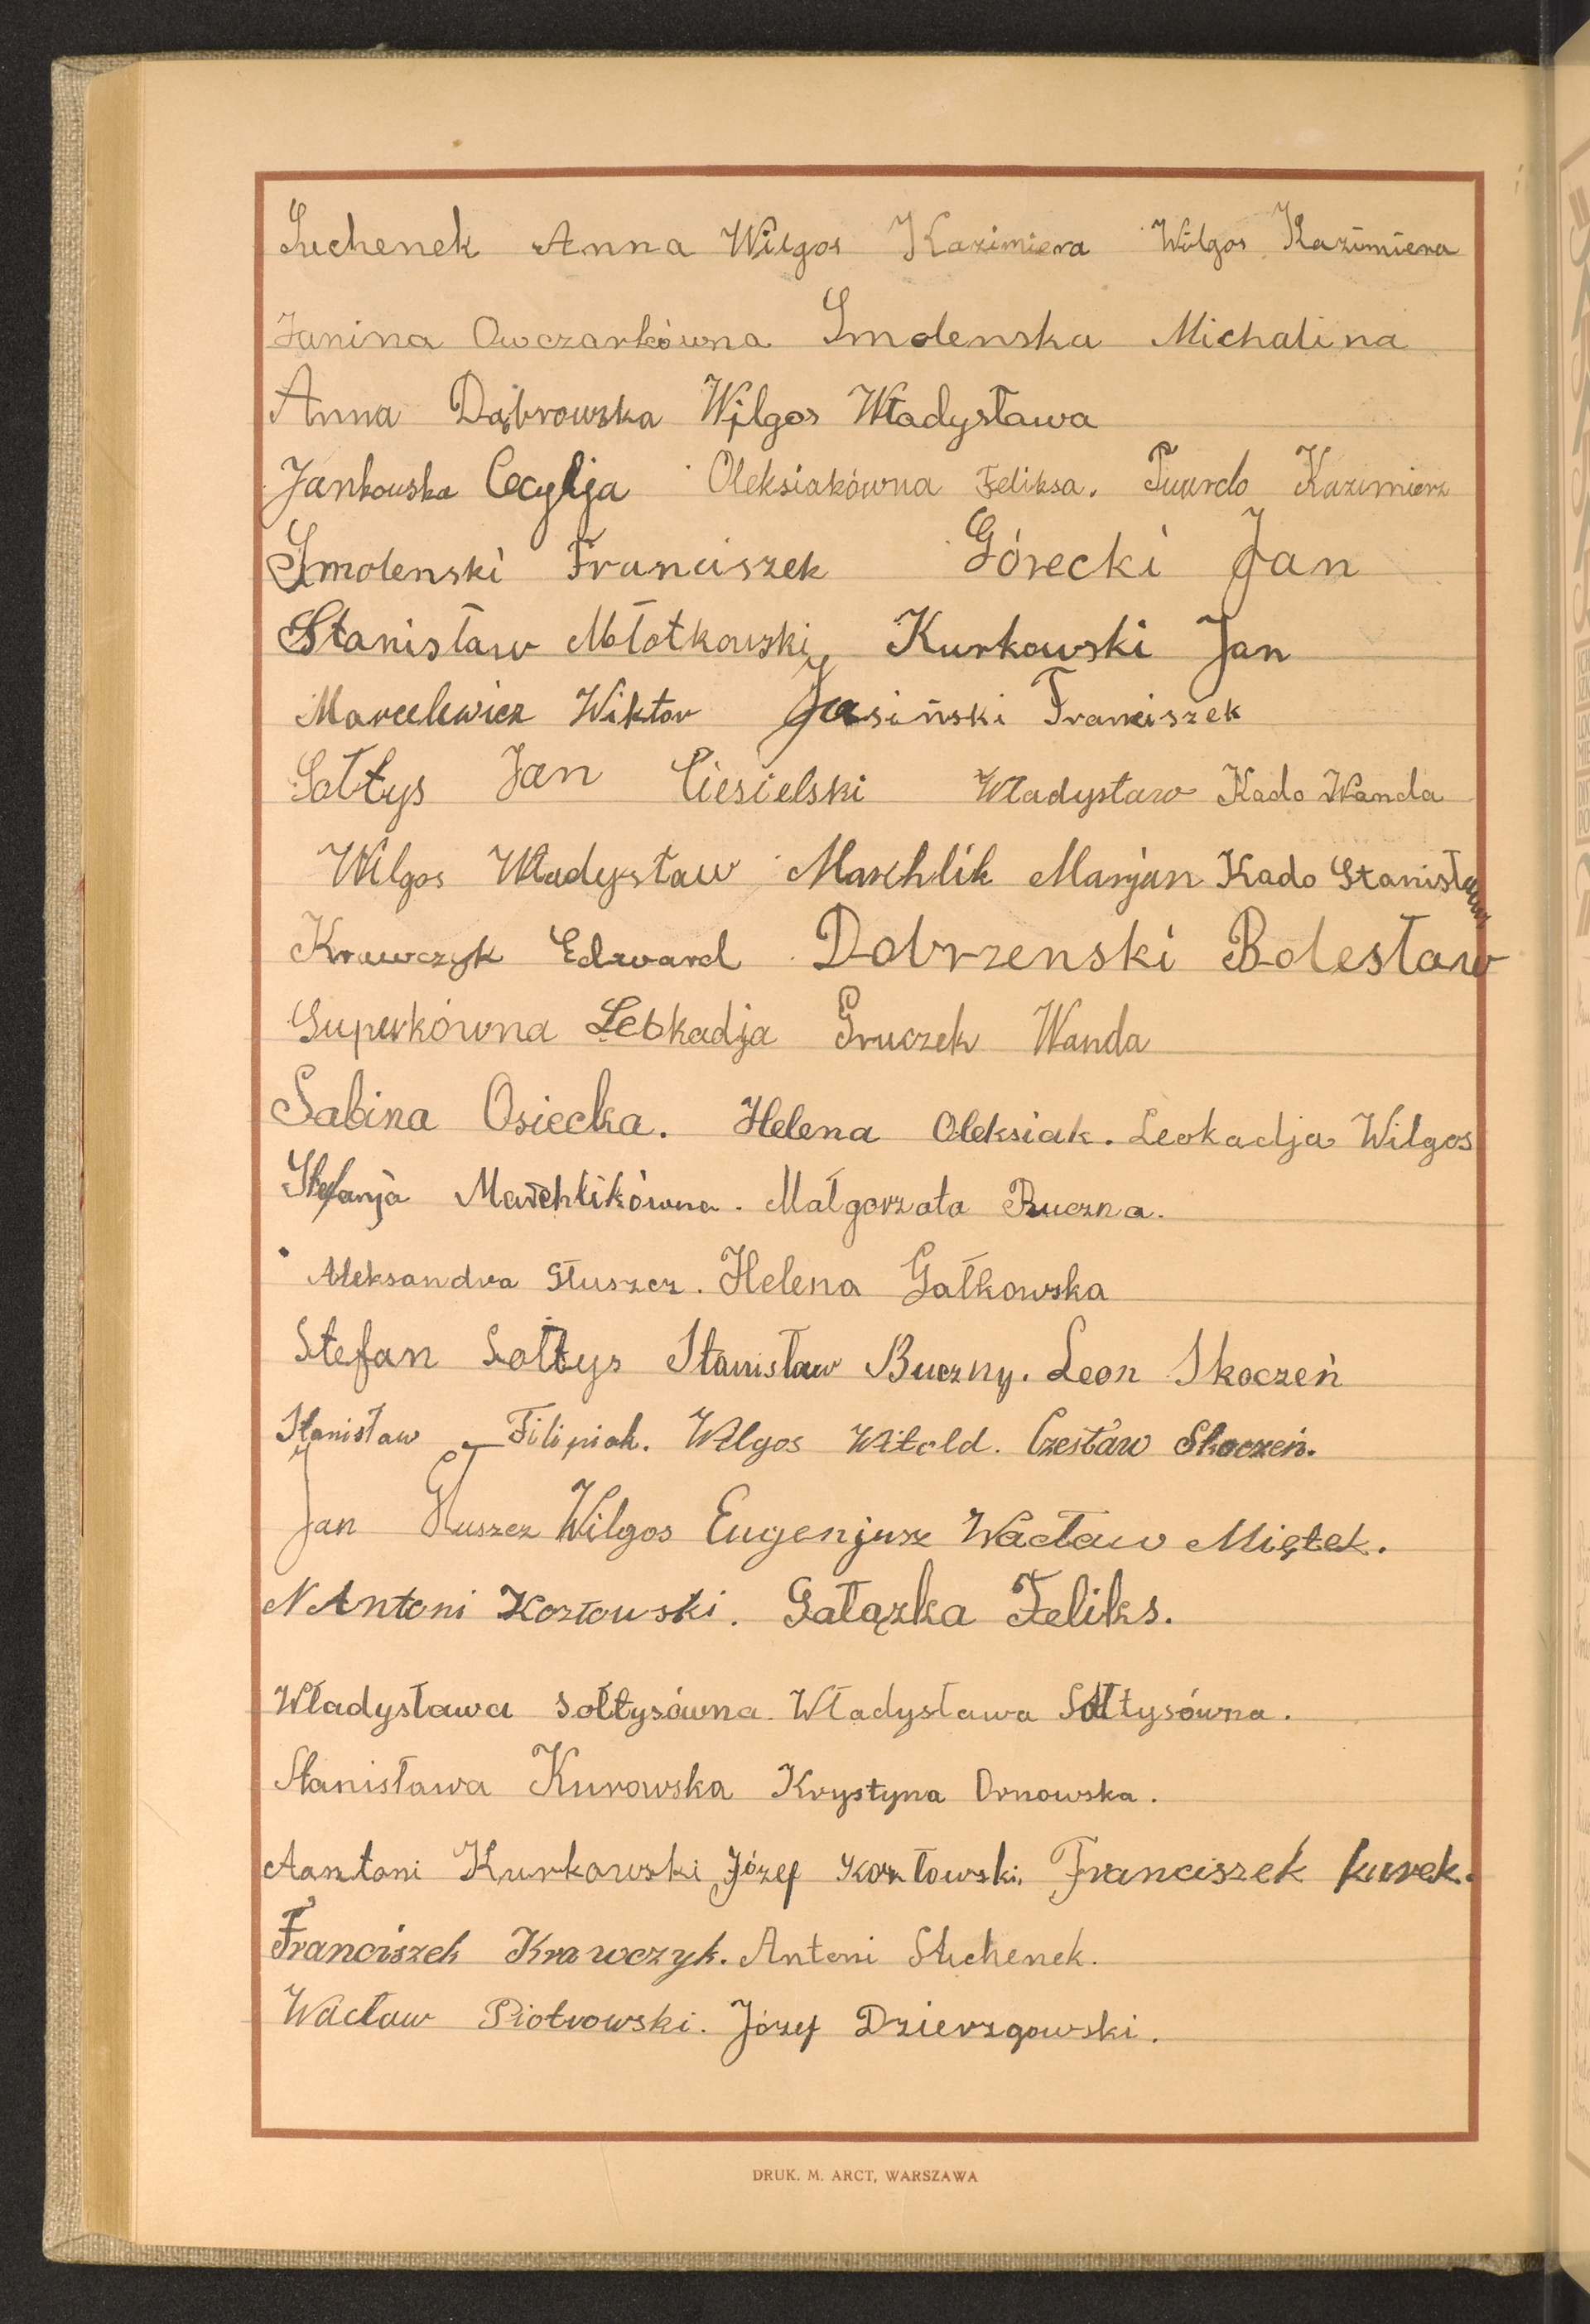 Suchenek Anna Wilgos Kazimiera Wilgos Kazimiera
Janina Owczarkówna Smolenska Michalina
Anna Dąbrowska Wilgos Władysława
Jankowska Cecylja Oleksiakówna Feliksa. Kazimierz
Smolenski Franciszek Górecki Jan
Stanisław Młotkowski Kurkowski Jan
Marcelewicz Wiktor Jasiński Franciszek
Sołtys Jan Ciesielski Władysław Kado Wanda
Wilgos Władysław Marchlik Marjan Kado Stanisław
Krawczyk Edward Dobrzenski Bolesław
Leokadja Gruczek Wanda
Sabina Osiecka. Helena Oleksiak. Leokadja Wilgos
Stefanja Marchlikówna. Małgorzata Buczna.
Aleksandra Głuszcz. Helena Gałkowska
Stefan Sołtys Stanisław Buczny. Leon Skoczeń
Stanisław Filipiak. Wilgos Witold. Czesław Skoczeń.
Jan Głuszcz Wilgos Eugenjusz Wacław Miętek.
Antoni Kozłowski. Gałązka Feliks.
Władysława Sołtysówna. Władysława Sołtysówna.
Stanisława Kurowska Krystyna Ornowska.
Aantoni Kurkowski Józef Kozłowski. Franciszek Kurek.
Franciszek Krawczyk. Antoni Suchenek.
Wacław Piotrowski. Józef Dzierzgowski.
DRUK. M. ARCT, WARSZAWA